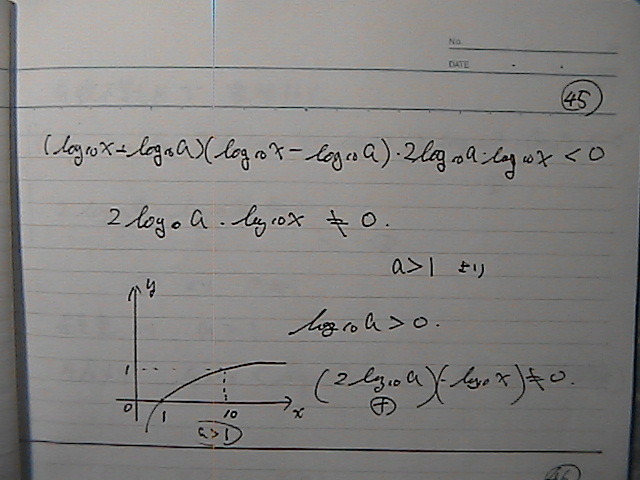 No.
DATE
45
(log₁₀x + log₁₀a)(log₁₀x − log₁₀a)・2log₁₀a・log₁₀x < 0
2log₁₀a・log₁₀x ≠ 0.
a>1 より
log₁₀a > 0.
(2log₁₀a)(log₁₀x) ≠ 0.
⊕
y
1
0 1 10 x
a>1